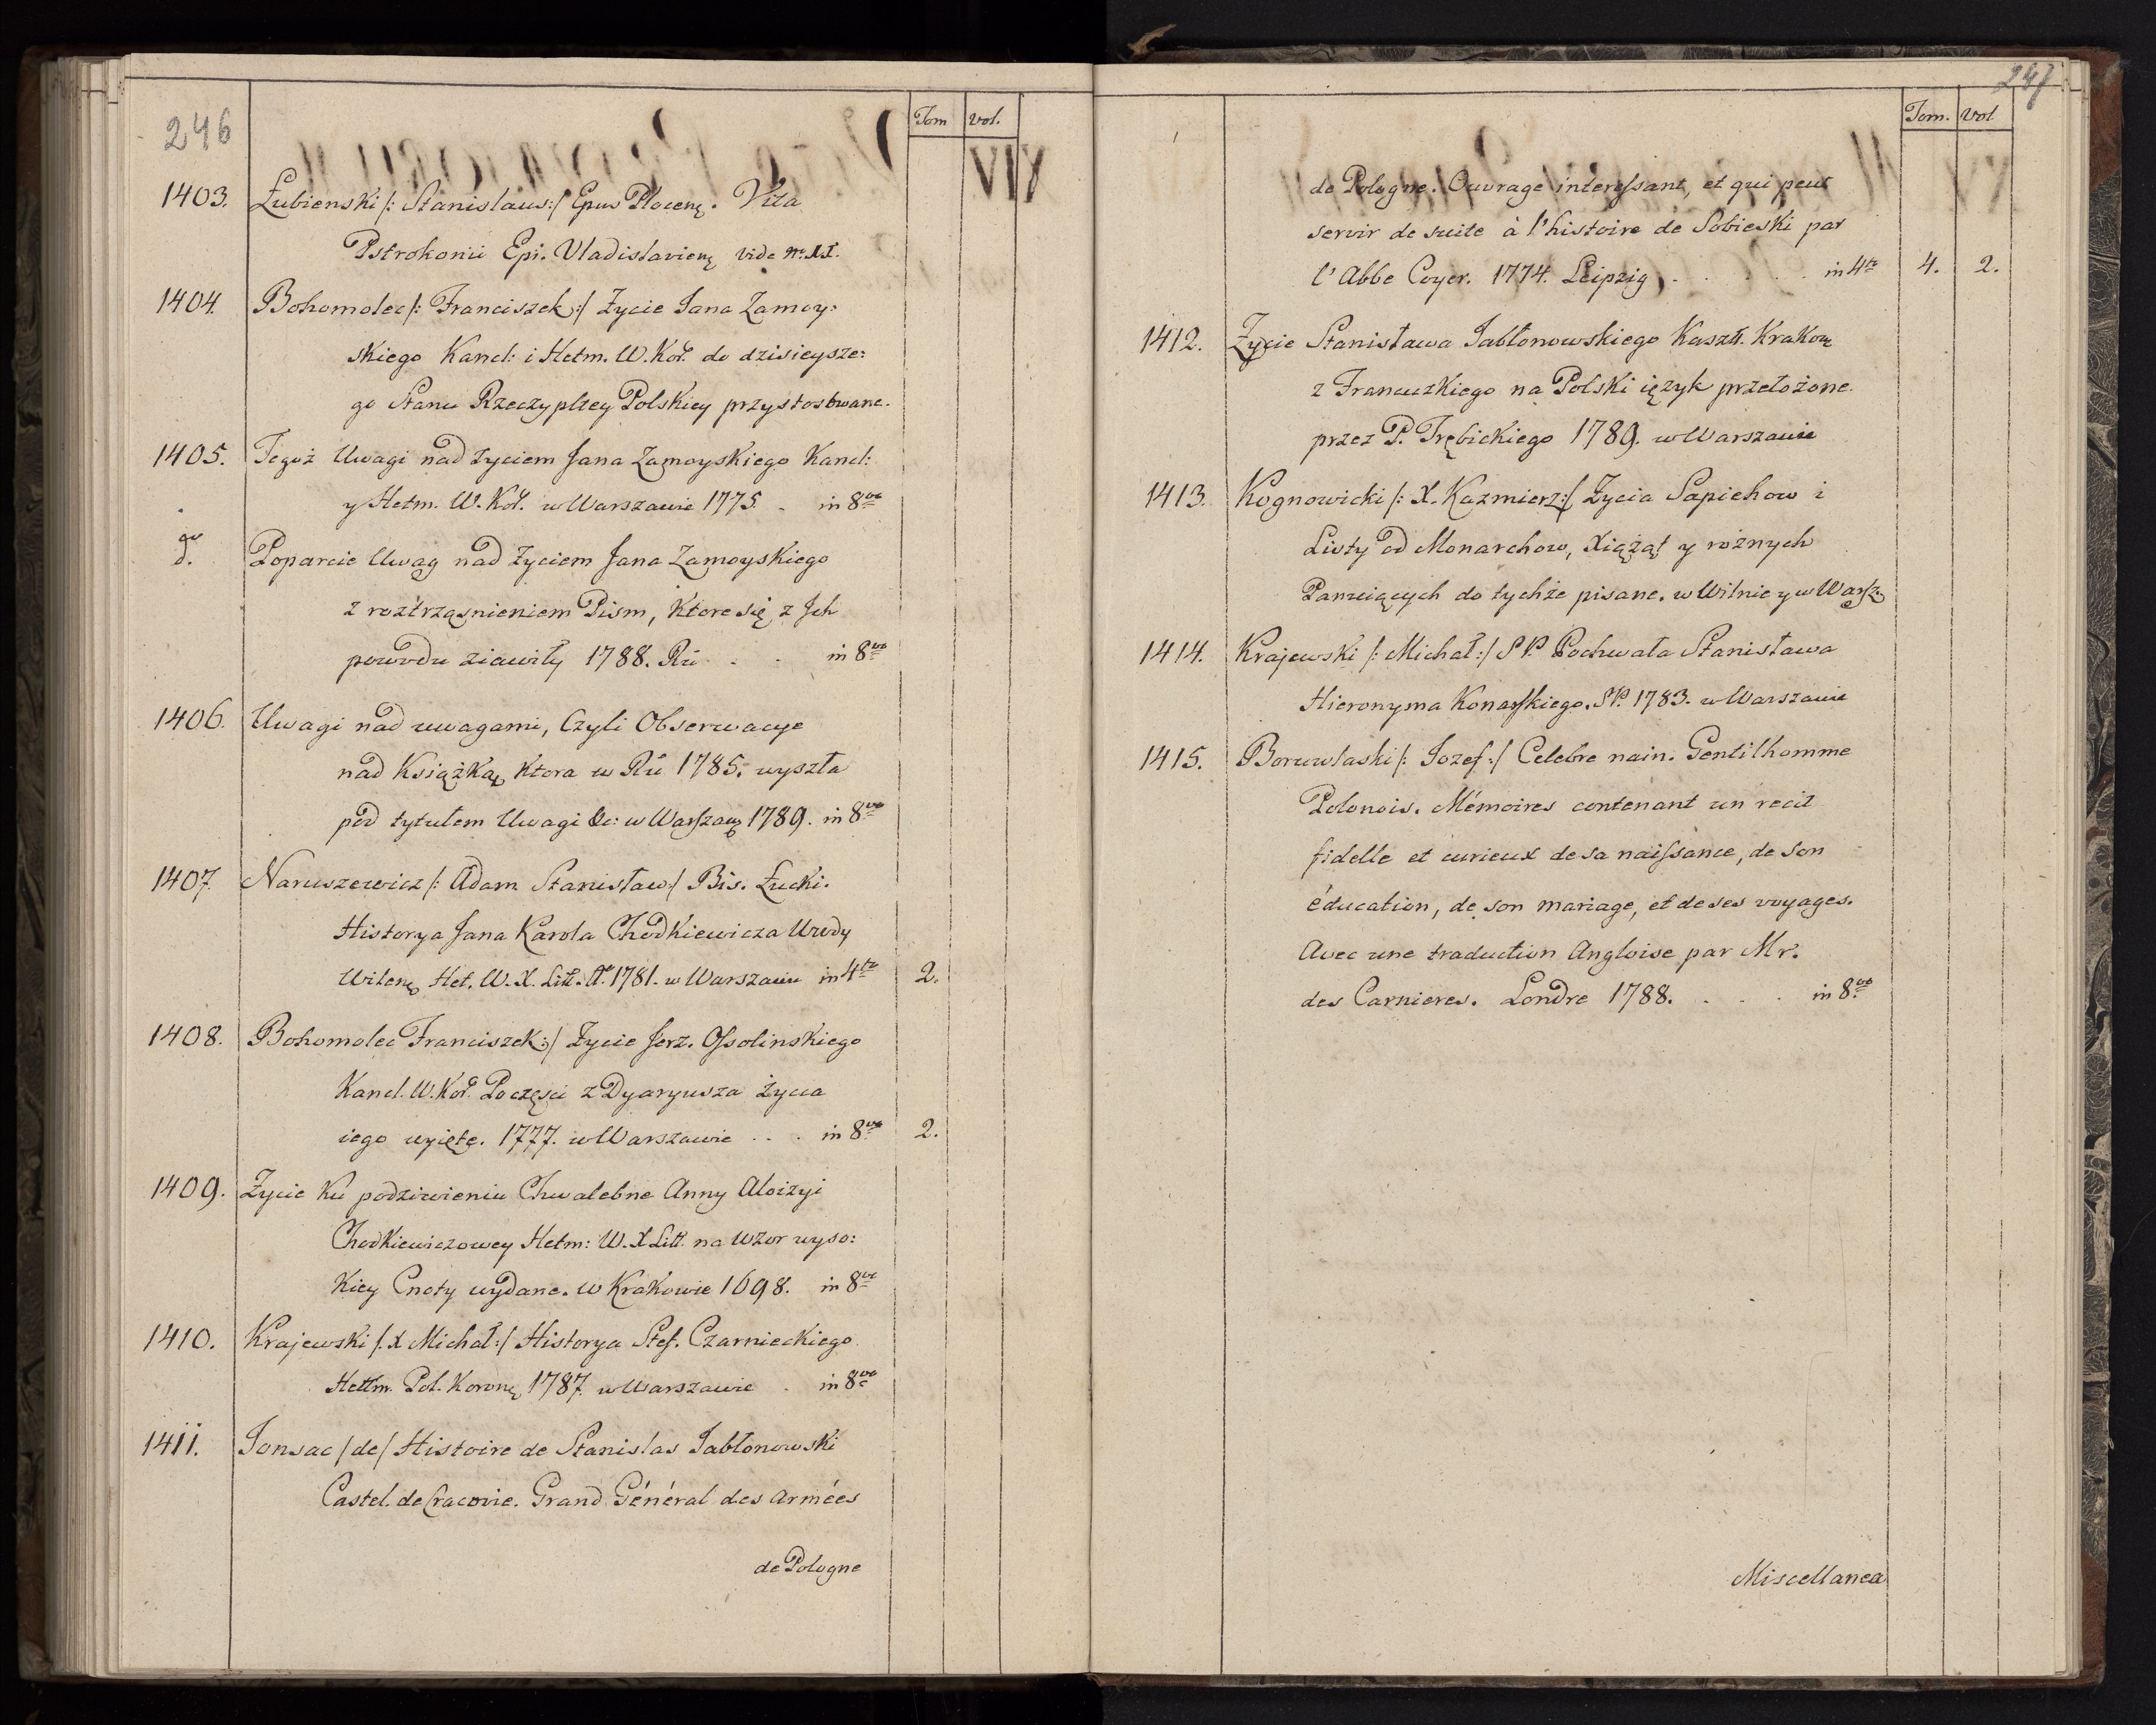 246
Tom vol.
1403. Łubienski /: Stanislaus :/ Epus Plocens. Vita
Pstrokonii Epi. Vladislaviens vide
1404. Bohomolec /: Franciszek :/ Zycie Jana Zamoy:
skiego Kancl: i Hetm. W. Kor. do dzisieysze:
go Stanu Rzeczyplrey Polskiey przystosowane.
1405. Tegoż Uwagi nad życiem Jana Zamoyskiego Kancl:
y Hetm. W. Kor. w Warszawie 1775. . in 8vo
d. Poparcie Uwag nad życiem Jana Zamoyskiego
z roztrząśnieniem Pism, Ktore się z Ich
powodu ziawiły 1788. Rú . . in 8vo
1406. Uwagi nad uwagami, Czyli Obserwacye
nad Książką, ktora w Rú 1785. wyszła
pod tytułem Uwagi &c: w Warszaw 1789. in 8vo
1407. Naruszewicz /: Adam Stanisław :/ Bis. Łucki.
Historya Jana Karola Chodkiewicza Wwdy
Wilens Het. W. X. Litt. 1781. w Warszawie in 4to 2.
1408. Bohomolec Franciszek :/ Zycie Jerz. Ossolinskiego
Kancl. W. Kor. Poczęsci z Dyaryusza życia
iego wyięte. 1777. w Warszawie . . . in 8vo 2.
1409. Zycie ku podziwieniu Chwalebne Anny Aloizyi
Chodkiewiczowey Hetm: W. X Litt. na wzor wyso:
kiey Cnoty wydane. w Krakowie 1698. in 8vo
1410. Krajewski /: X Michał :/ Historya Stef. Czarnieckiego
Hettm. Pol. Koronę 1787. w Warszawie . in 8vo
1411. Jonsac /de/ Histoire de Stanislas Jabłonowski
Castel. de Cracovie. Grand Général des Armées
de Pologne
247
Tom. Vol
de Pologne. Ouvrage interessant, et qui peut
servir de suite à l'histoire de Sobieski par
l'Abbe Coyer. 1774. Leipzig . . . . . in 4to 4. 2.
1412. Zycie Stanisława Jabłonowskiego Kasztl. Krakow
z Francuzkiego na Polski ięzyk przełożone.
przez P. Trębickiego 1789. w Warszawie
1413. Kognowicki /: X. Kazmierz :/ Zycia Sapiehow i
Listy od Monarchow, Xiążąt y rożnych
Panuiących do tychże pisane. w Wilnie y w Warsz.
1414. Krajewski /: Michał :/ S P. Pochwała Stanisława
Hieronyma Konarskiego. S P. 1783. w Warszawie
1415. Boruwlaski /: Jozef :/ Celebre nain. Gentilhomme
Polonois. Mémoires contenant un recit
fidelle et curieux de sa naissance, de son
éducation, de son mariage, et de ses voyages.
Avec une traduction Angloise par Mr.
des Carnieres. Londre 1788. . . . in 8vo
Miscellanea